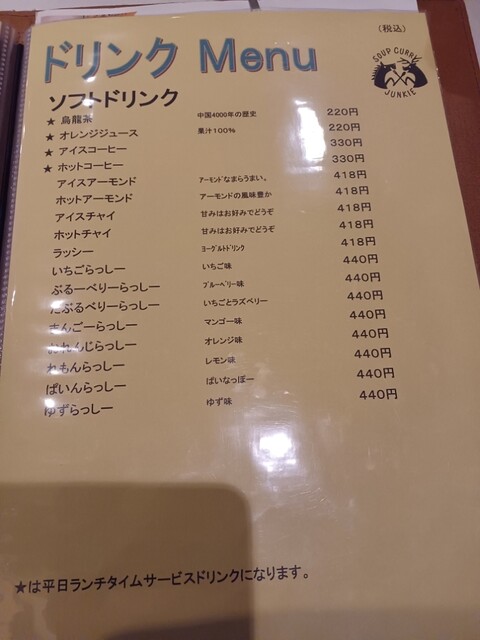 (税込)
ドリンク Menu
SOUP CURRY
JUNKIE
ソフトドリンク
★ 烏龍茶 中国4000年の歴史 220円
★ オレンジジュース 果汁100% 220円
★ アイスコーヒー 330円
★ ホットコーヒー 330円
アイスアーモンド アーモンドなまらうまい。 418円
ホットアーモンド アーモンドの風味豊か 418円
アイスチャイ 甘みはお好みでどうぞ 418円
ホットチャイ 甘みはお好みでどうぞ 418円
ラッシー ヨーグルトドリンク 418円
いちごらっしー いちご味 440円
ぶるーべりーらっしー ブルーベリー味 440円
だぶるべりーらっしー いちごとラズベリー 440円
まんごーらっしー マンゴー味 440円
おれんじらっしー オレンジ味 440円
れもんらっしー レモン味 440円
ぱいんらっしー ぱいなっぽー 440円
ゆずらっしー ゆず味 440円
★は平日ランチタイムサービスドリンクになります。